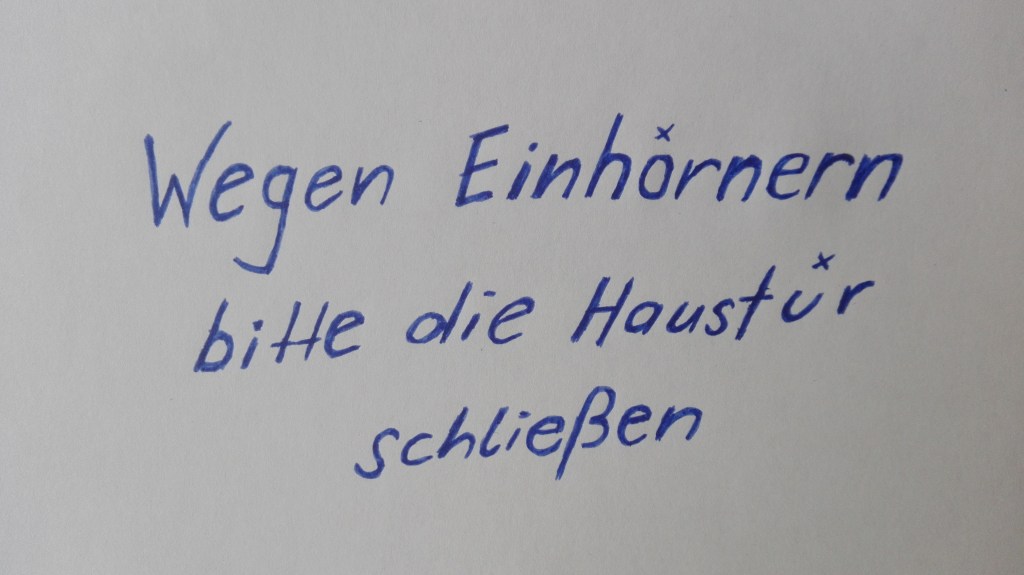 Wegen Einhörnern
bitte die Haustür
schließen